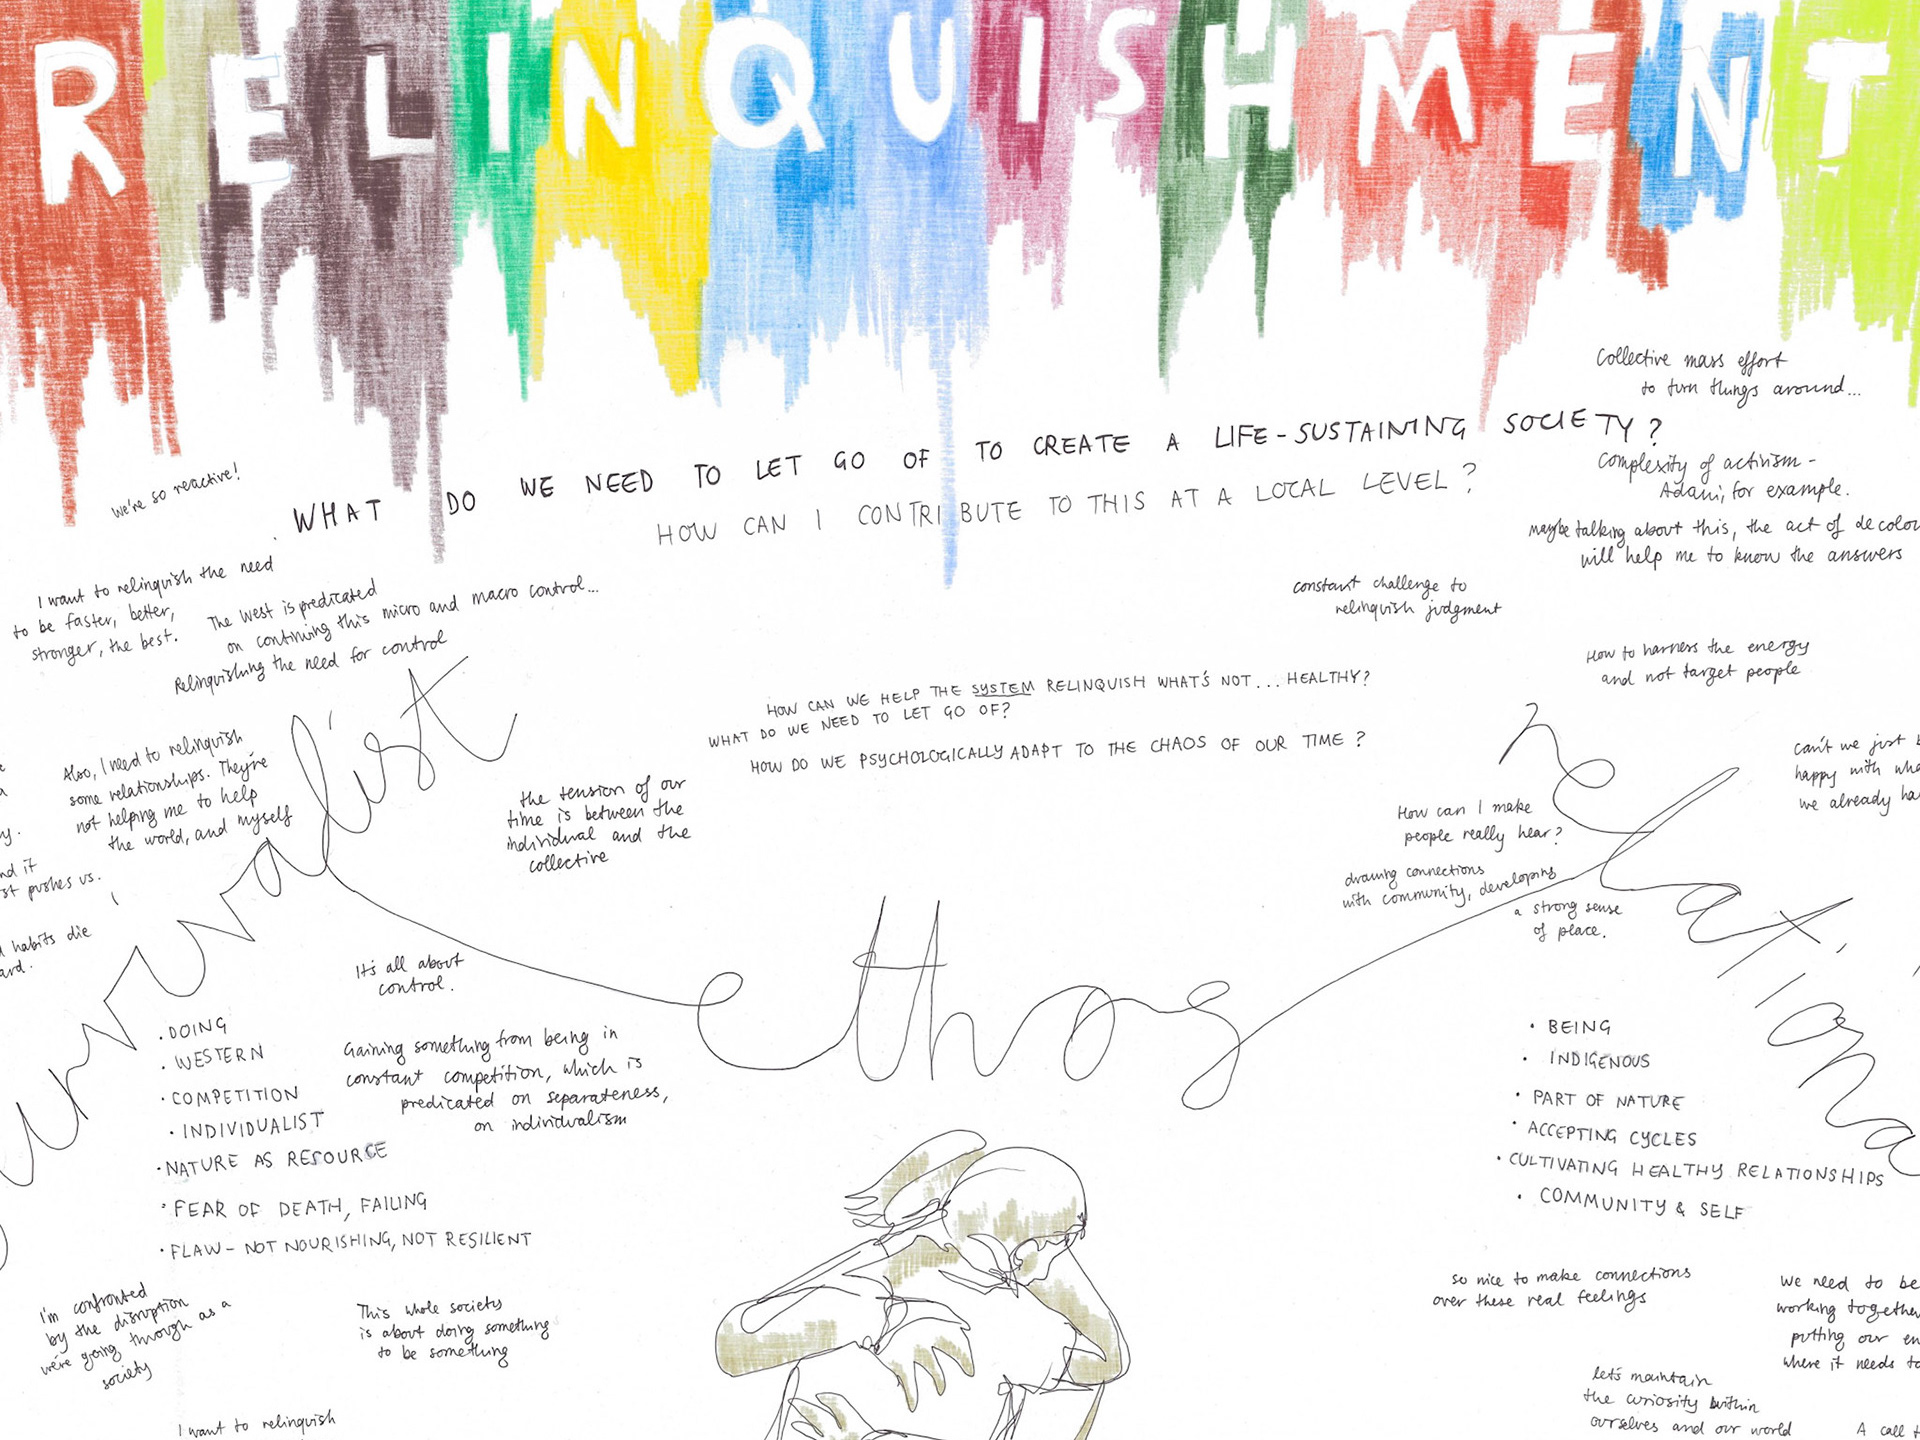 RELINQUISHMENT
Collective mass effort
to turn things around...
WHAT DO WE NEED TO LET GO OF TO CREATE A LIFE-SUSTAINING SOCIETY?
HOW CAN I CONTRIBUTE TO THIS AT A LOCAL LEVEL?
we're so reactive!
Complexity of activism -
Adani, for example.
maybe talking about this, the act of decolou
will help me to know the answers
I want to relinquish the need
to be faster, better,
stronger, the best.
The West is predicated
on continuing this micro and macro control...
Relinquishing the need for control
constant challenge to
relinquish judgment
How to harness the energy
and not target people
HOW CAN WE HELP THE SYSTEM RELINQUISH WHAT'S NOT... HEALTHY?
WHAT DO WE NEED TO LET GO OF?
HOW DO WE PSYCHOLOGICALLY ADAPT TO THE CHAOS OF OUR TIME?
Also, I need to relinquish
some relationships. They're
not helping me to help
the world, and myself
nd it
st pushes us.
habits die
ard.
the tension of our
time is between the
individual and the
collective
can't we just b
happy with wha
we already ha
How can I make
people really hear?
drawing connections
with community, developing
a strong sense
of place.
urvivalist
ethos
relationa
It's all about
control.
• DOING
• WESTERN
• COMPETITION
• INDIVIDUALIST
• NATURE AS RESOURCE
• FEAR OF DEATH, FAILING
• FLAW - NOT NOURISHING, NOT RESILIENT
Gaining something from being in
constant competition, which is
predicated on separateness,
on individualism
• BEING
• INDIGENOUS
• PART OF NATURE
• ACCEPTING CYCLES
• CULTIVATING HEALTHY RELATIONSHIPS
• COMMUNITY & SELF
I'm confronted
by the disruption
we're going through as a
society
This whole society
is about doing something
to be something
I want to relinquish
so nice to make connections
over these real feelings
We need to be
working together
putting our en
where it needs to
let's maintain
the curiosity within
ourselves and our world
A call t